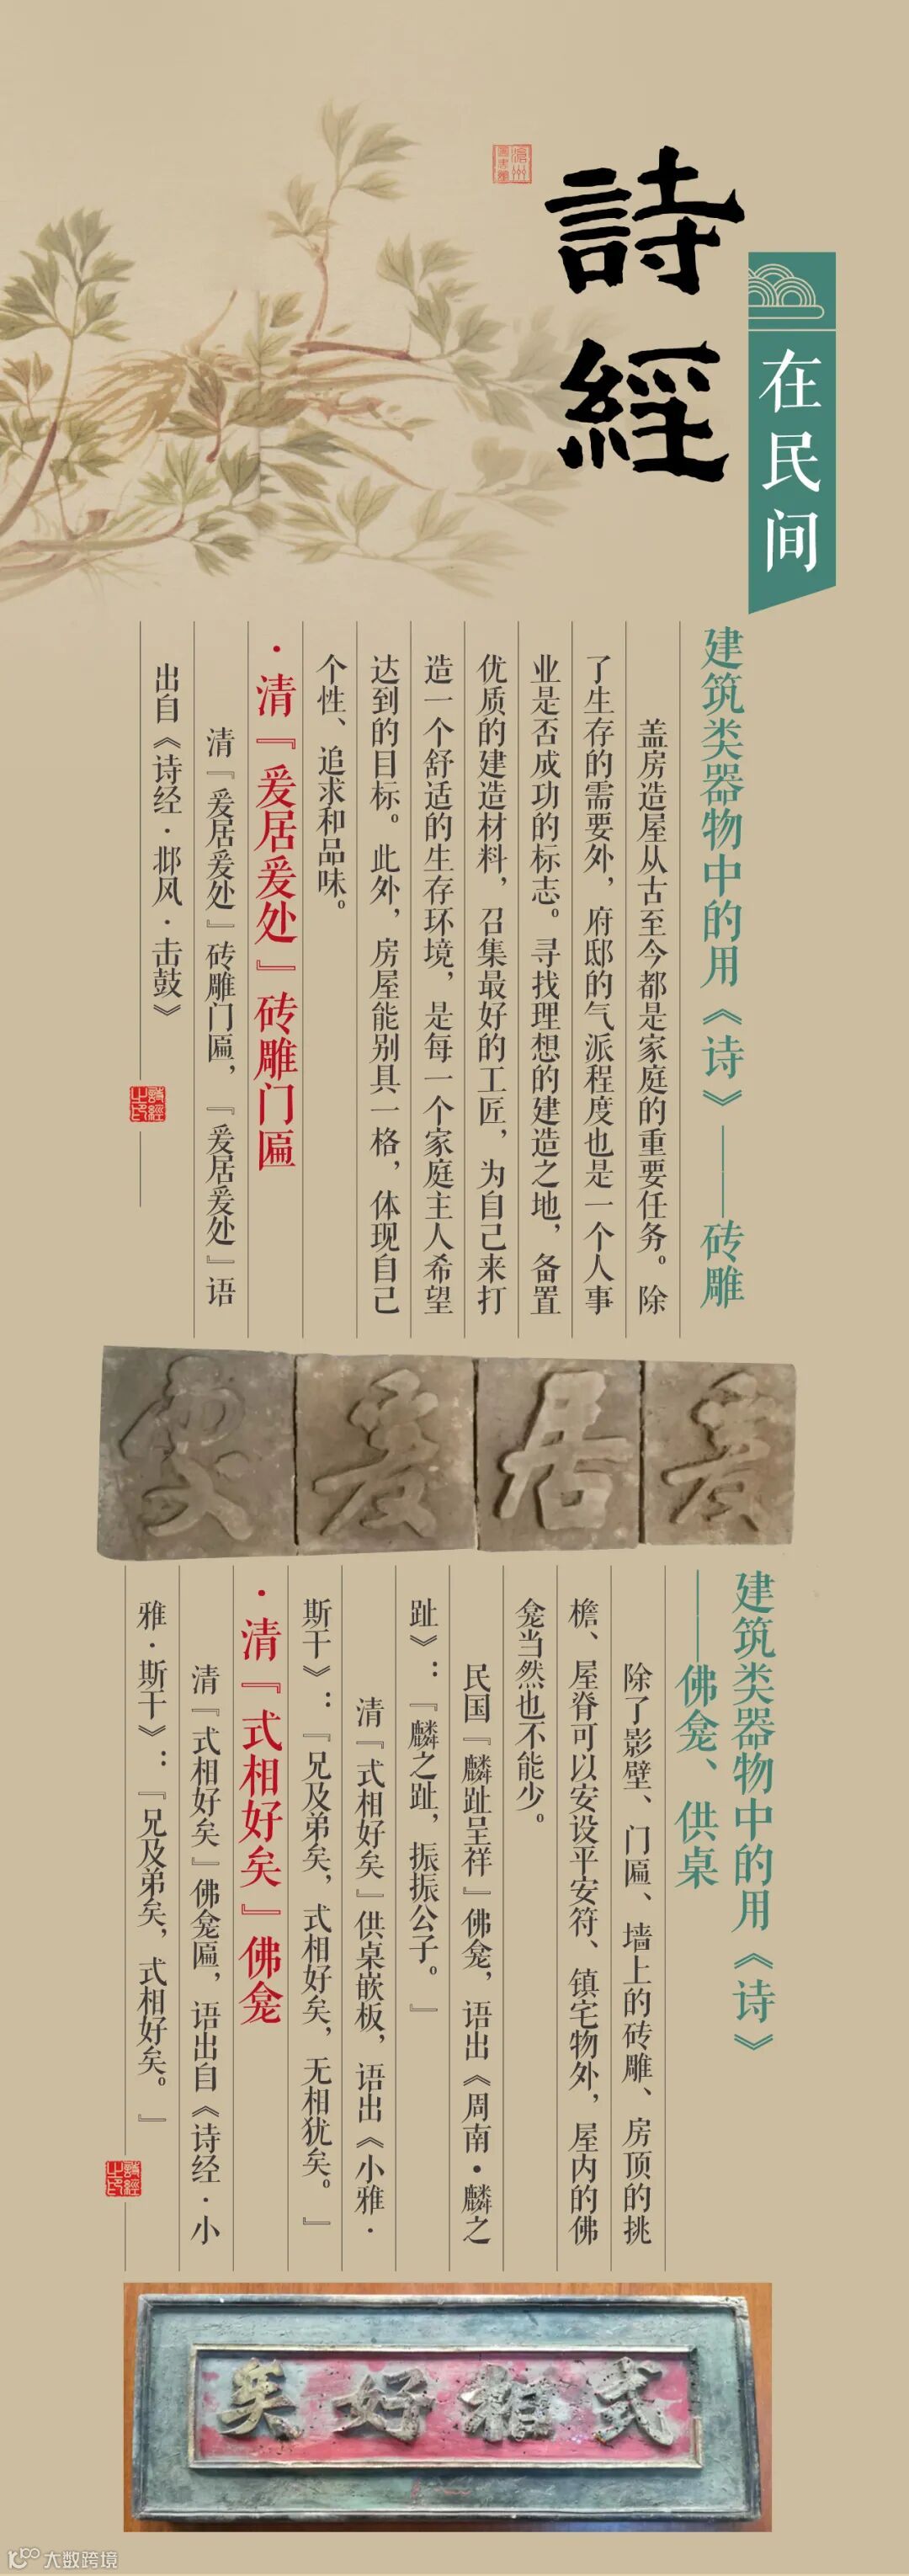 詩經
沧州图书馆
在民间
建筑类器物中的用《诗》——砖雕
盖房造屋从古至今都是家庭的重要任务。除
了生存的需要外，府邸的气派程度也是一个人事
业是否成功的标志。寻找理想的建造之地，备置
优质的建造材料，召集最好的工匠，为自己来打
造一个舒适的生存环境，是每一个家庭主人希望
达到的目标。此外，房屋能别具一格，体现自己
个性、追求和品味。
·清『爰居爰处』砖雕门匾
清『爰居爰处』砖雕门匾，『爰居爰处』语
出自《诗经·邶风·击鼓》
詩經之印
爰居爰處
建筑类器物中的用《诗》
——佛龛、供桌
除了影壁、门匾、墙上的砖雕、房顶的挑
檐、屋脊可以安设平安符、镇宅物外，屋内的佛
龛当然也不能少。
民国『麟趾呈祥』佛龛，语出《周南·麟之
趾》：『麟之趾，振振公子。』
清『式相好矣』供桌嵌板，语出《小雅·
斯干》：『兄及弟矣，式相好矣，无相犹矣。』
·清『式相好矣』佛龛
清『式相好矣』佛龛匾，语出自《诗经·小
雅·斯干》：『兄及弟矣，式相好矣。』
詩經之印
式相好矣
大数跨境